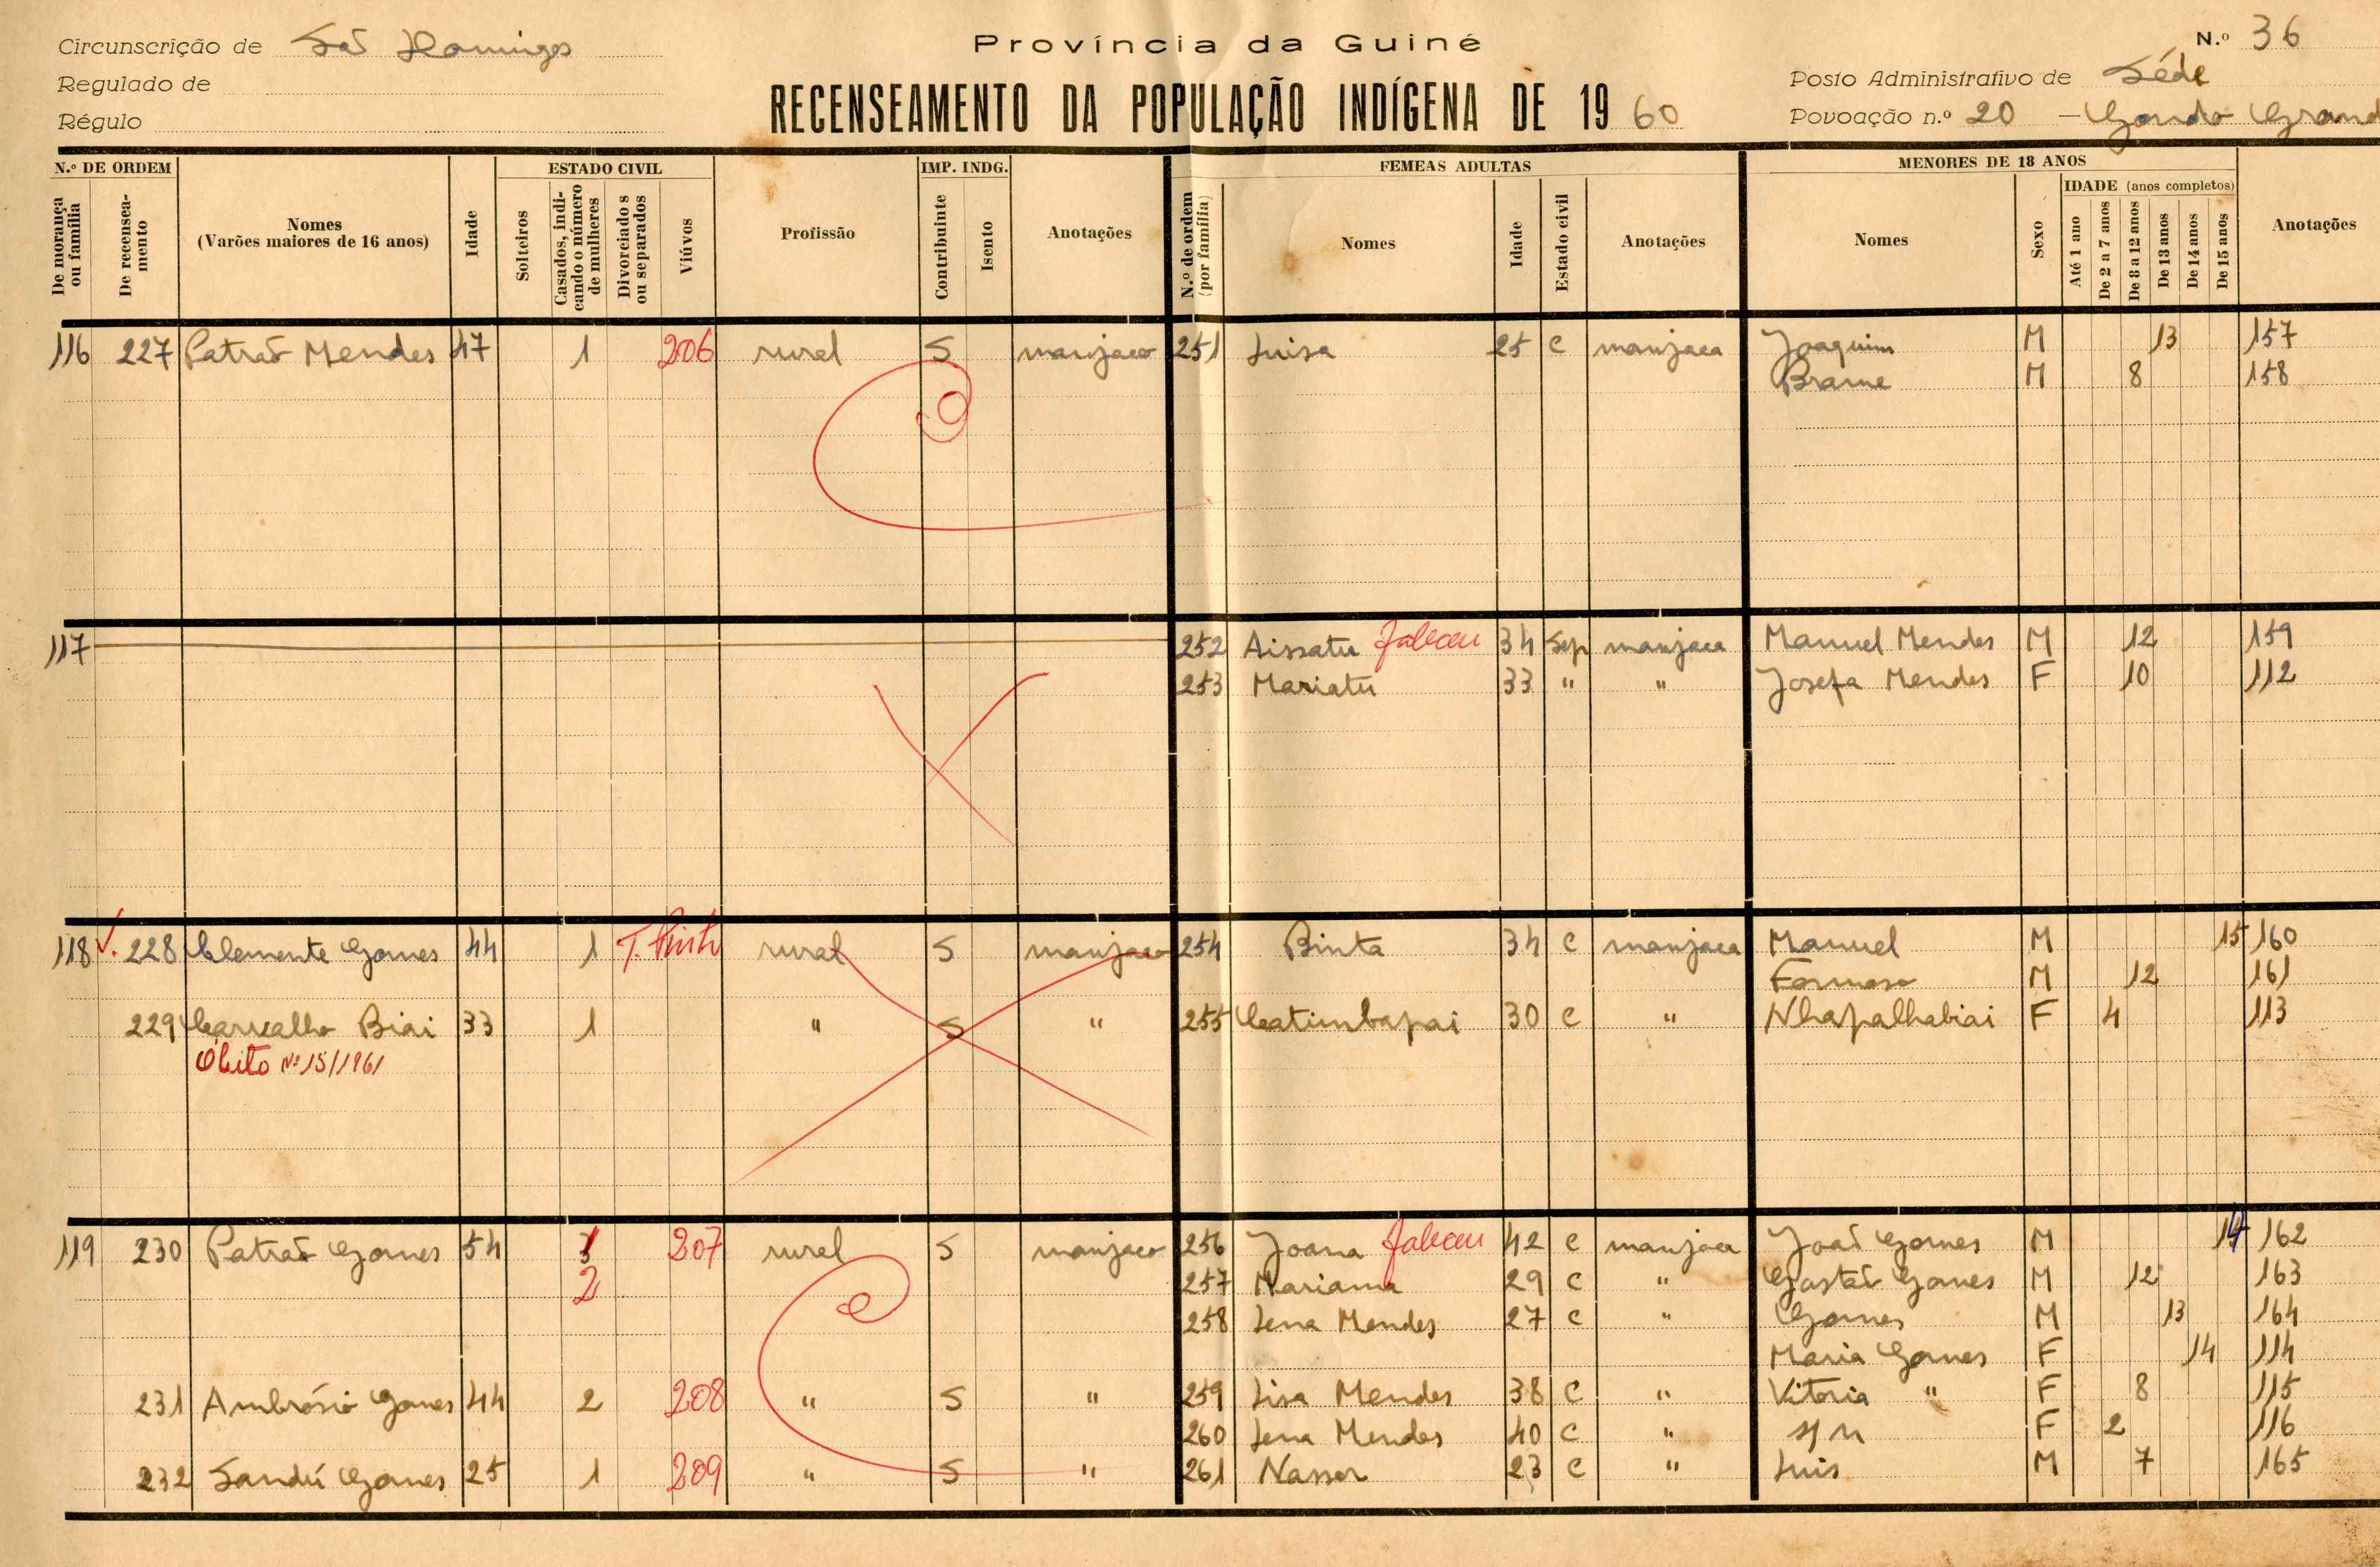 Circunscrição de São Domingos
Província da Guiné
N.º 36
Regulado de
Posto Administrativo de Séde
Régulo
RECENSEAMENTO DA POPULAÇÃO INDÍGENA DE 19 60
Povoação n.º 20 -
N.º DE ORDEM
De morança ou família
De recenseamento
Nomes
(Varões maiores de 16 anos)
Idade
ESTADO CIVIL
Solteiros
Casados, indicando o número de mulheres
Divorciados ou separados
Viúvos
Profissão
IMP. INDG.
Contribuinte
Isento
Anotações
FEMEAS ADULTAS
N.º de ordem (por família)
Nomes
Idade
Estado civil
Anotações
MENORES DE 18 ANOS
Nomes
Sexo
IDADE (anos completos)
Até 1 ano
De 2 a 7 anos
De 8 a 12 anos
De 13 anos
De 14 anos
De 15 anos
Anotações
116 227 Patrão Mendes 47 1 206 rural S manjaco 251 Luisa 25 C manjaca Joaquim M 13 157
Brame M 8 158
117 252 Aissatu 34 Sep manjaca Manuel Mendes M 12 159
253 Mariatu 33 " " Josefa Mendes F 10 112
118 228 Clemente Gomes 44 1 T. Pinto rural S manjaco 254 Binta 34 C manjaca Manuel M 15 160
Formoso M 12 161
229 Carvalho Biai 33 1 " S " 255 Catimbapai 30 C " Nhapalhabiai F 4 113
Óbito Nº 15/1961
119 230 Patrão Gomes 54 207 rural S manjaco 256 Joana 42 C manjaca João Gomes M 14 162
2 257 Mariama 29 C " Gastão Gomes M 12 163
258 Lena Mendes 27 C " Gomes M 13 164
Maria Gomes F 14 114
231 Ambrósio Gomes 44 2 208 " S " 259 Lisa Mendes 38 C " Vitoria " F 8 115
260 Lena Mendes 40 C " s/n F 2 116
232 Sandú Gomes 25 1 209 " S " 261 23 C " Luis M 7 165